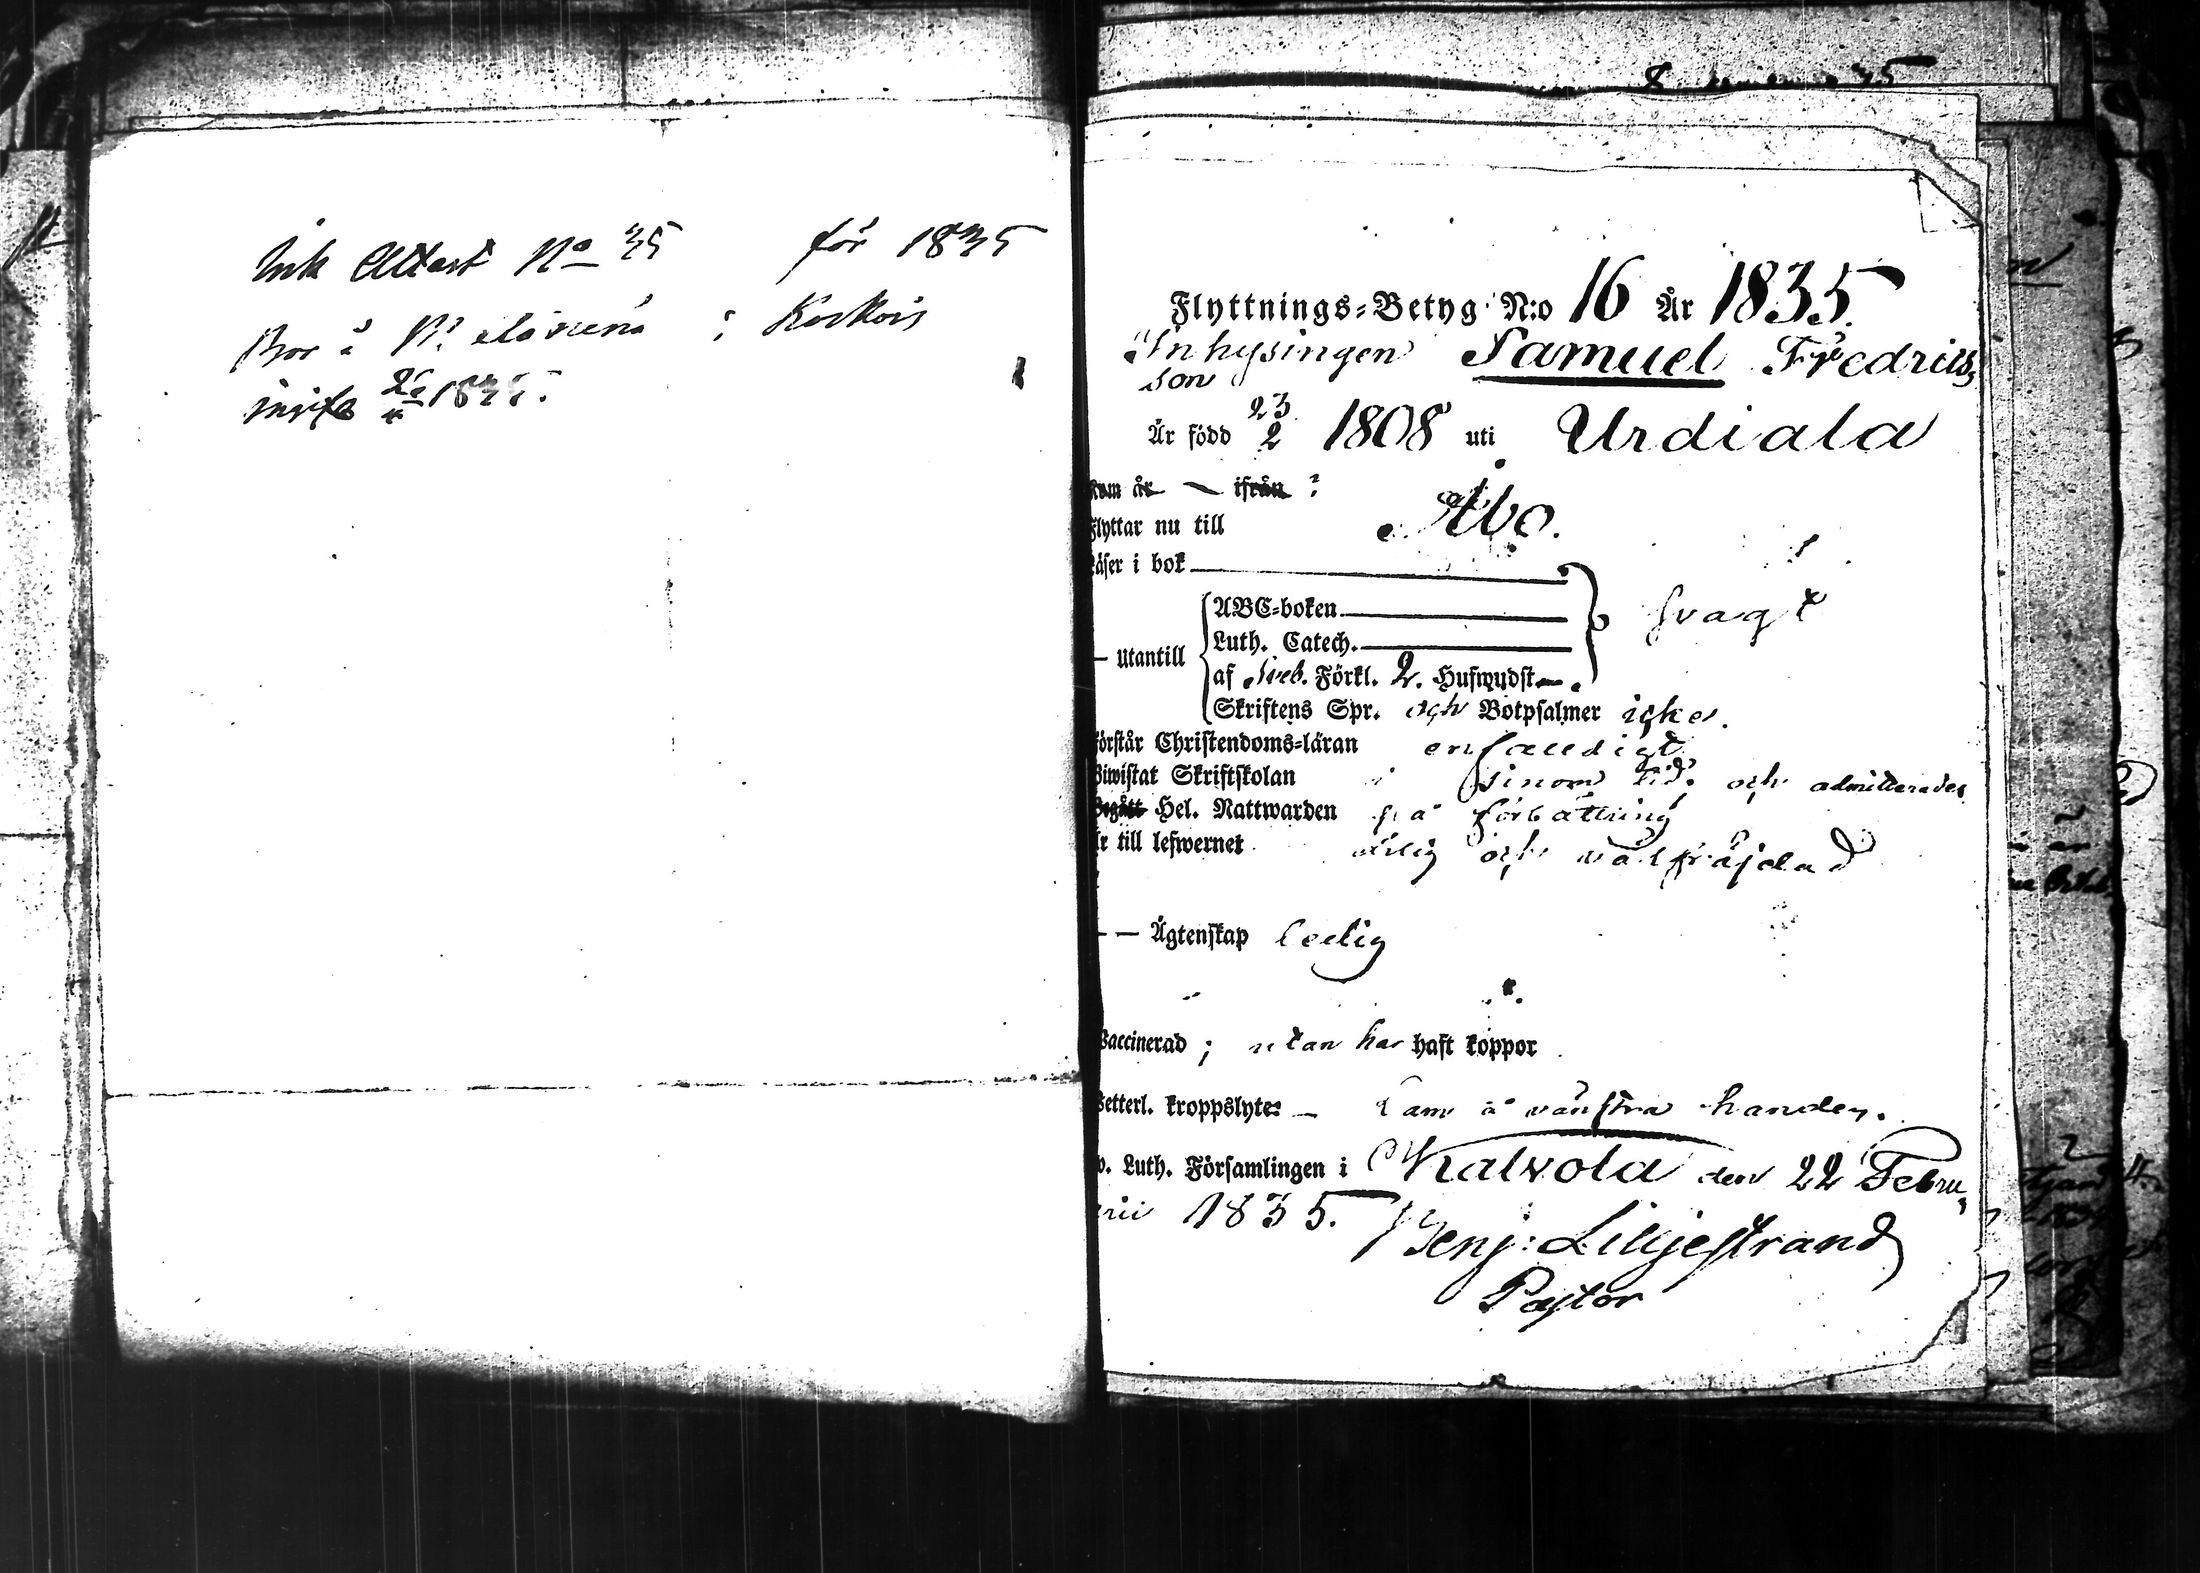 Ink Attest No 35 för 1835
Bor å i Korkois
1835.
Flyttnings-Betyg N:o 16 År 1835.
Inhysingen Samuel Fredriks,
son
Är född 23/2 1808 uti Urdiala
Kom år — ifrån ?
Flyttar nu till Åbo.
Läser i bok
ABC-boken
svagt
Luth. Catech.
— utantill
af Sveb. Förkl. 2. Hufwudst—.
Skriftens Spr. och Botpsalmer icke.
Förstår Christendoms-läran enfaldigt
Biwistat Skriftskolan i sinom tid. och admitterades
Begått Hel. Nattwarden på förbättring
Är till lefwernet ärlig och välfräjdad
— — Ägtenskap ledig
Vaccinerad ; utan har haft koppor
Wetterl. kroppslyte: — Lam å vänstra handen.
Ev. Luth. Församlingen i Kalvola den 22 Febru,
arii 1835. Benj: Liljestrand
Pastor